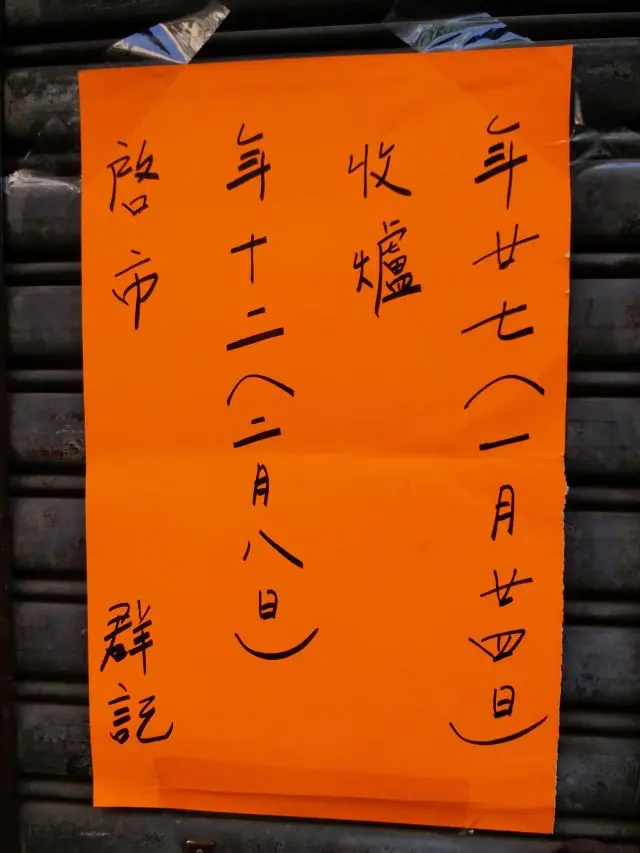 年廿七(一月廿四日)
收爐
年十二(二月八日)
啓市
群記